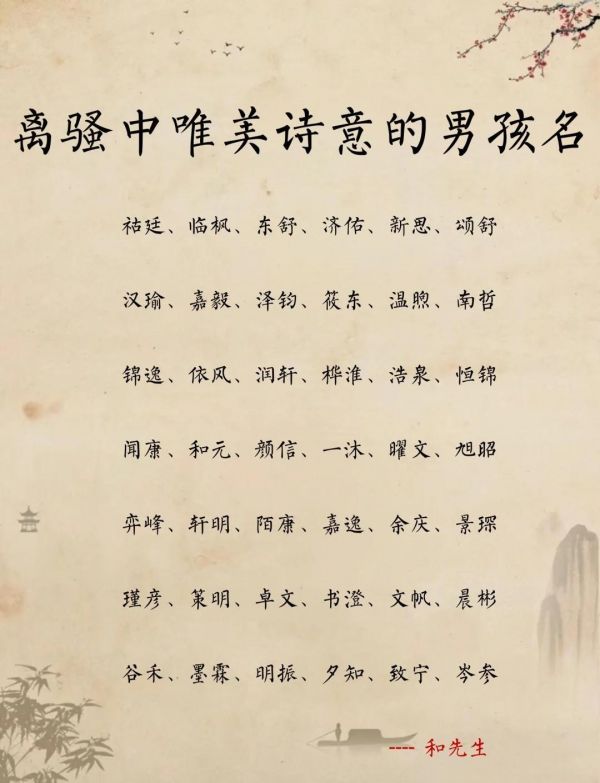 离骚中唯美诗意的男孩名
祜廷、临枫、东舒、济佑、新思、颂舒
汉瑜、嘉毅、泽钧、筱东、温煦、南哲
锦逸、依风、润轩、桦淮、浩泉、恒锦
闻康、和元、颜信、一沐、曜文、旭昭
弈峰、轩明、陌康、嘉逸、余庆、景琛
瑾彦、策明、卓文、书澄、文帆、晨彬
谷禾、墨霖、明振、夕知、致宁、岑参
---- 和先生